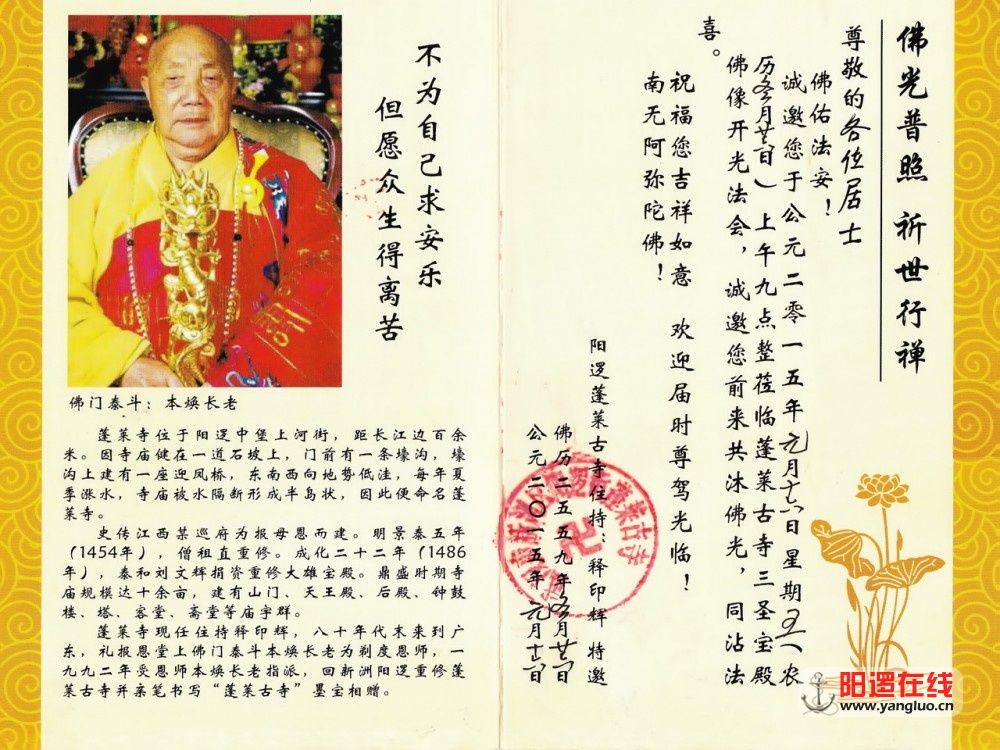 佛光普照 祈世行禅
尊敬的各位居士
佛佑法安！
诚邀您于公元二零一五年元月十六日星期五（农
历冬月廿六日）上午九点整莅临蓬莱古寺三圣宝殿
佛像开光法会，诚邀您前来共沐佛光，同沾法
喜。
祝福您吉祥如意 欢迎届时尊驾光临！
南无阿弥陀佛！
阳逻蓬莱古寺住持：释印辉 特邀
佛历二五五九年冬月廿六日
公元二〇一五年元月十六日
不为自己求安乐
但愿众生得离苦
佛门泰斗：本焕长老
蓬莱寺位于阳逻中堡上河街，距长江边百余
米。因寺庙健在一道石坡上，门前有一条壕沟，壕
沟上建有一座迎凤桥，东南西向地势低洼，每年夏
季涨水，寺庙被水隔断形成半岛状，因此便命名蓬
莱寺。
史传江西某巡府为报母恩而建。明景泰五年
（1454年），僧租直重修。成化二十二年（1486
年），泰和刘文辉捐资重修大雄宝殿。鼎盛时期寺
庙规模达十余亩，建有山门、天王殿、后殿、钟鼓
楼、塔、客堂、斋堂等庙宇群。
蓬莱寺现任住持释印辉，八十年代末来到广
东，礼报恩堂上佛门泰斗本焕长老为剃度恩师，一
九九二年受恩师本焕长老指派，回新洲阳逻重修蓬
莱古寺并亲笔书写“蓬莱古寺”墨宝相赠。
阳逻在线
www.yangluo.cn